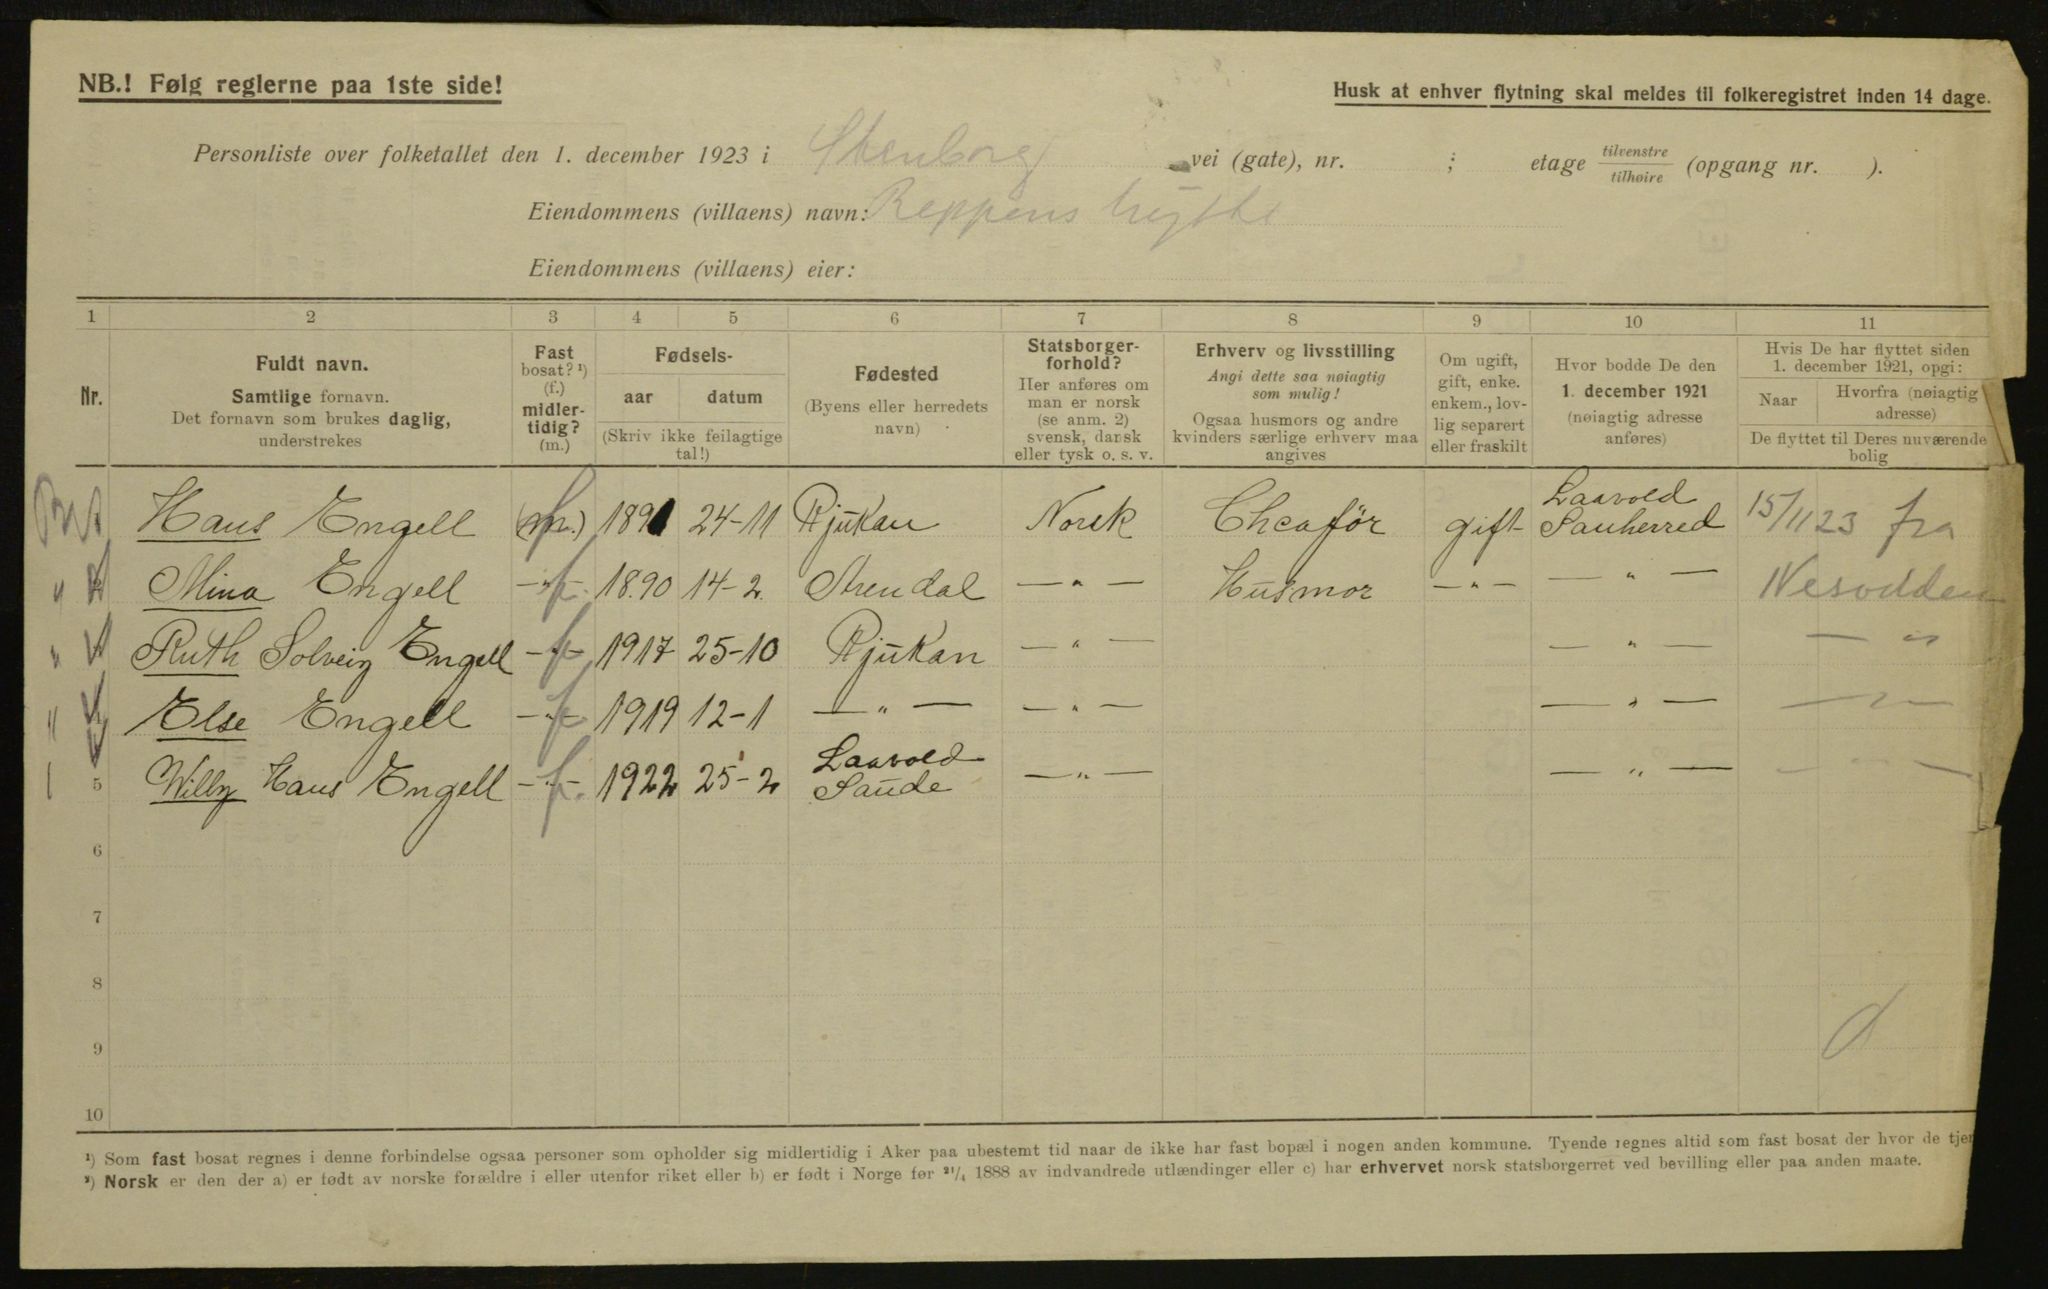 NB.! Følg reglerne paa 1ste side!
Husk at enhver flytning skal meldes til folkeregistret inden 14 dage.
Personliste over folketallet den 1. december 1923 i Stenborg vei (gate), nr. ; etage tilvenstre/tilhøire (opgang nr. ).
Eiendommens (villaens) navn: Reppens hytte
Eiendommens (villaens) eier:
1 2 3 4 5 6 7 8 9 10 11
Nr.
Fuldt navn.
Samtlige fornavn.
Det fornavn som brukes daglig,
understrekes
Fast
bosat? ¹)
(f.)
midler-
tidig?
(m.)
Fødsels-
aar datum
(Skriv ikke feilagtige
tal!)
Fødested
(Byens eller herredets
navn)
Statsborger-
forhold?
Her anføres om
man er norsk
(se anm. 2)
svensk, dansk
eller tysk o. s. v.
Erhverv og livsstilling
Angi dette saa nøiagtig
som mulig!
Ogsaa husmors og andre
kvinders særlige erhverv maa
angives
Om ugift,
gift, enke.
enkem., lov-
lig separert
eller fraskilt
Hvor bodde De den
1. december 1921
(nøiagtig adresse
anføres)
Hvis De har flyttet siden
1. december 1921, opgi:
Naar
Hvorfra (nøiagtig
adresse)
De flyttet til Deres nuværende
bolig
Hans Engell (m.) f. 1891 24-11 Rjukan Norsk Cheaför gift Laavold Sauherred 15/11 23 fra
" Mina Engell -"- f. 1890 14-2. Arendal -"- Husmor -"- -"- Nesodden
" Ruth Solveig Engell -"- f. 1917 25-10 Rjukan -"- -"- -"-
" Else Engell -"- f. 1919 12-1 -"- -"- -"- -"-
5 Willy Hans Engell -"- f. 1922 25-2 Laavold Saude -"- -"- -"-
6
7
8
9
10
¹) Som fast bosat regnes i denne forbindelse ogsaa personer som opholder sig midlertidig i Aker paa ubestemt tid naar de ikke har fast bopæl i nogen anden kommune. Tyende regnes altid som fast bosat der hvor de tjen
²) Norsk er den der a) er født av norske forældre i eller utenfor riket eller b) er født i Norge før ²¹/₄ 1888 av indvandrede utlændinger eller c) har erhvervet norsk statsborgerret ved bevilling eller paa anden maate.